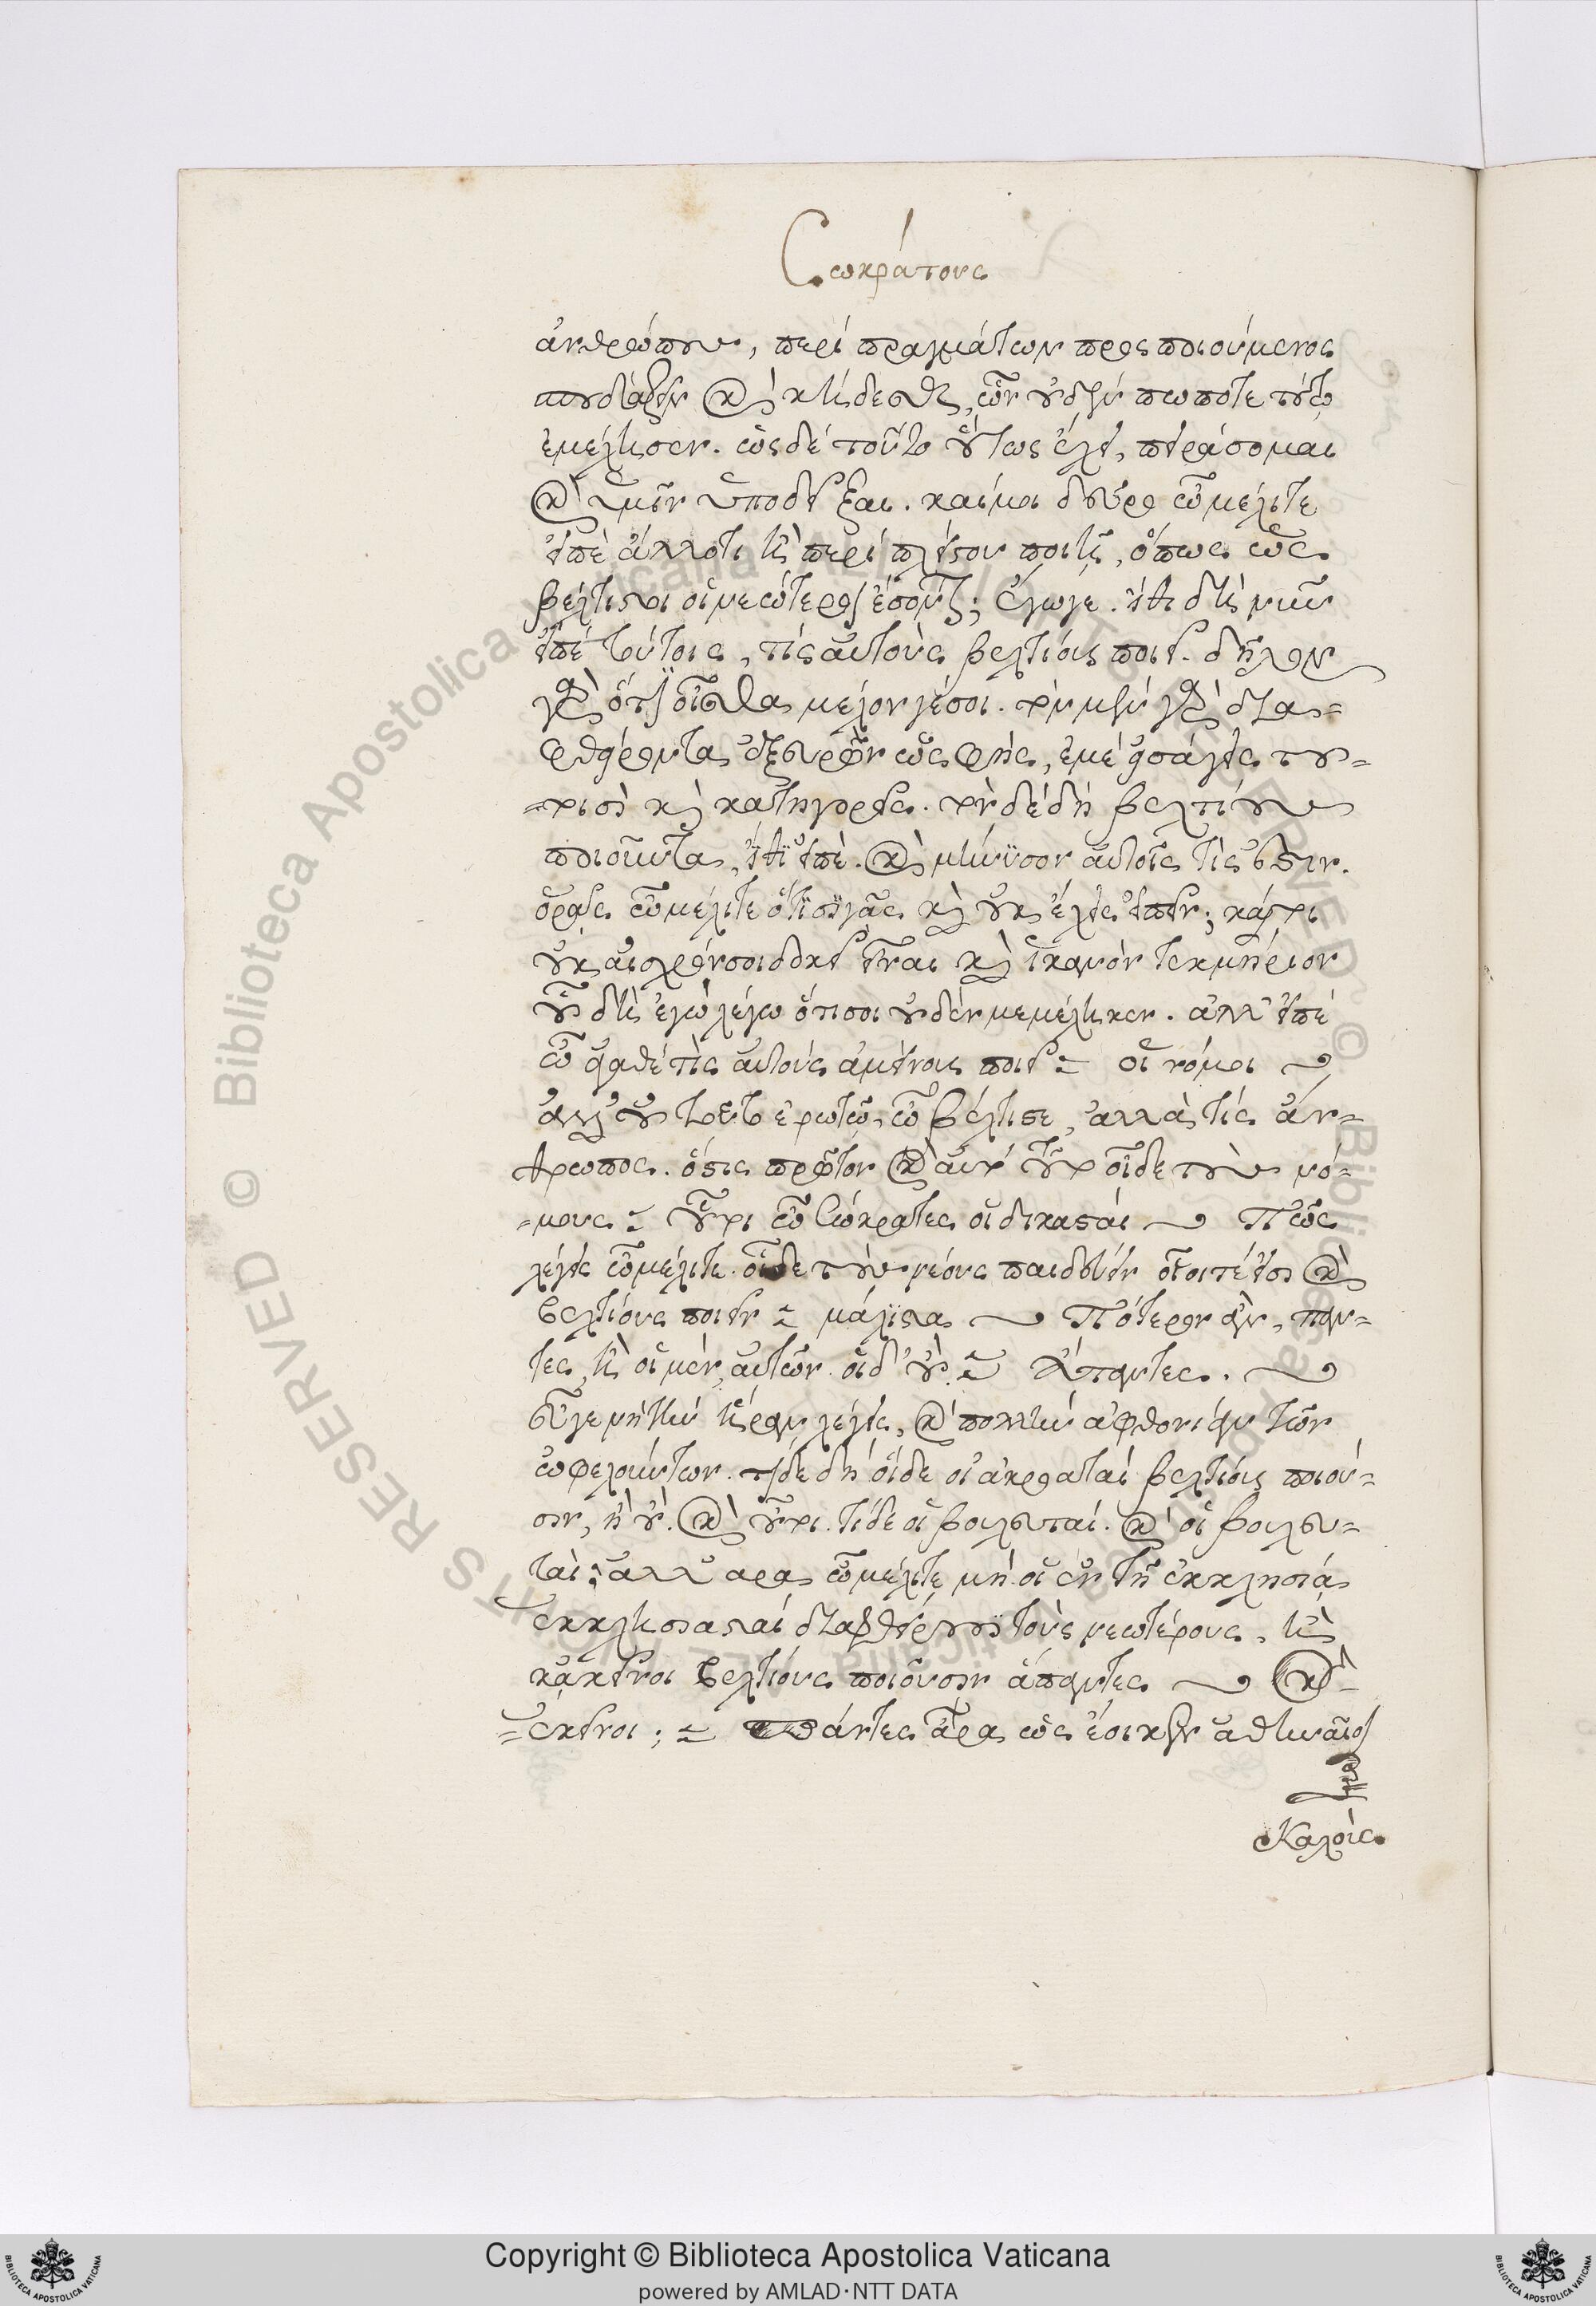 Σωκράτους
ἀνθρώπους, περὶ πραγμάτων προςποιούμενος
σπουδάζειν καὶ κήδεσθαι, ὧν οὐδὲν πώποτε τούτῳ
ἐμέλησεν. ὡς δὲ τοῦτο οὕτως ἔχει, πειράσομαι
καὶ ὑμῖν ὑποδεῖξαι. καί μοι δεῦρο ὦ μέλιτε
εἰπὲ ἄλλοτι ἢ περὶ πλείστου ποιῇ, ὅπως ὡς
βέλτιστοι οἱ νεώτεροι ἔσονται; ἔγωγε. ἴθι δὴ νῦν
εἰπὲ τούτοις, τίς αὐτοὺς βελτίους ποιεῖ. δῆλον
γὰρ ὅτι οἶσθα μέλον γέ σοι. τὸν μὲν γὰρ δια-
φθείροντα ἐξευρὼν ὡς φῂς, ἐμὲ εἰσάγεις του-
-τοισὶ καὶ κατηγορεῖς. τὸν δὲ δὴ βελτίους
ποιοῦντα, ἴθι εἰπὲ. καὶ μήνυσον αὐτοῖς τίς ἐστιν.
ὁρᾷς ὦ μέλιτε ὅτι σιγᾷς καὶ οὐκ ἔχεις εἰπεῖν; καίτοι
οὐκ αἰσχρόν σοι δοκεῖ εἶναι καὶ ἱκανὸν τεκμήριον
οὗ δὴ ἐγὼ λέγω ὅτι σοι οὐδὲν μεμέληκεν. ἀλλ' εἰπὲ
ὦ ἀγαθὲ τίς αὐτοὺς ἀμείνους ποιεῖ οἱ νόμοι
ἀλλ' οὐ τοῦτο ἐρωτῶ, ὦ βέλτιστε, ἀλλὰ τίς ἄν-
θρωπος. ὅστις πρῶτον καὶ αὐτὸ τοῦτο οἶδε τοὺς νό-
-μους οὗτοι ὦ Σώκρατες οἱ δικασταί Πῶς
λέγεις ὦ μέλιτε. οἵδε τοὺς νέους παιδεύειν οἷοί τέ εἰσι καὶ
βελτίους ποιεῖν μάλιστα Πότερον ἂν, παν-
τες, ἢ οἱ μὲν αὐτῶν. οἱ δ' οὔ Ἅπαντες.
εὖ γε νὴ τὴν ἥραν λέγεις, καὶ πολλὴν ἀφθονίαν τῶν
ὠφελούντων. τί δὲ δὴ οἵδε οἱ ἀκροαταὶ βελτίους ποιοῦ-
σιν, ἢ οὔ. καὶ οὗτοι. τί δὲ οἱ βουλευταί. καὶ οἱ βουλευ-
ταὶ; ἀλλ' ἆρα ὦ μέλιτε μὴ οἱ ἐν τῇ ἐκκλησίᾳ
ἐκκλησιασταὶ διαφθείρουσι τοὺς νεωτέρους, ἢ
κἀκεῖνοι βελτίους ποιοῦσιν ἅπαντες κα-
-κεῖνοι; πάντες ἄρα ὡς ἔοικεν ἀθηναῖοι
Καλοὺς